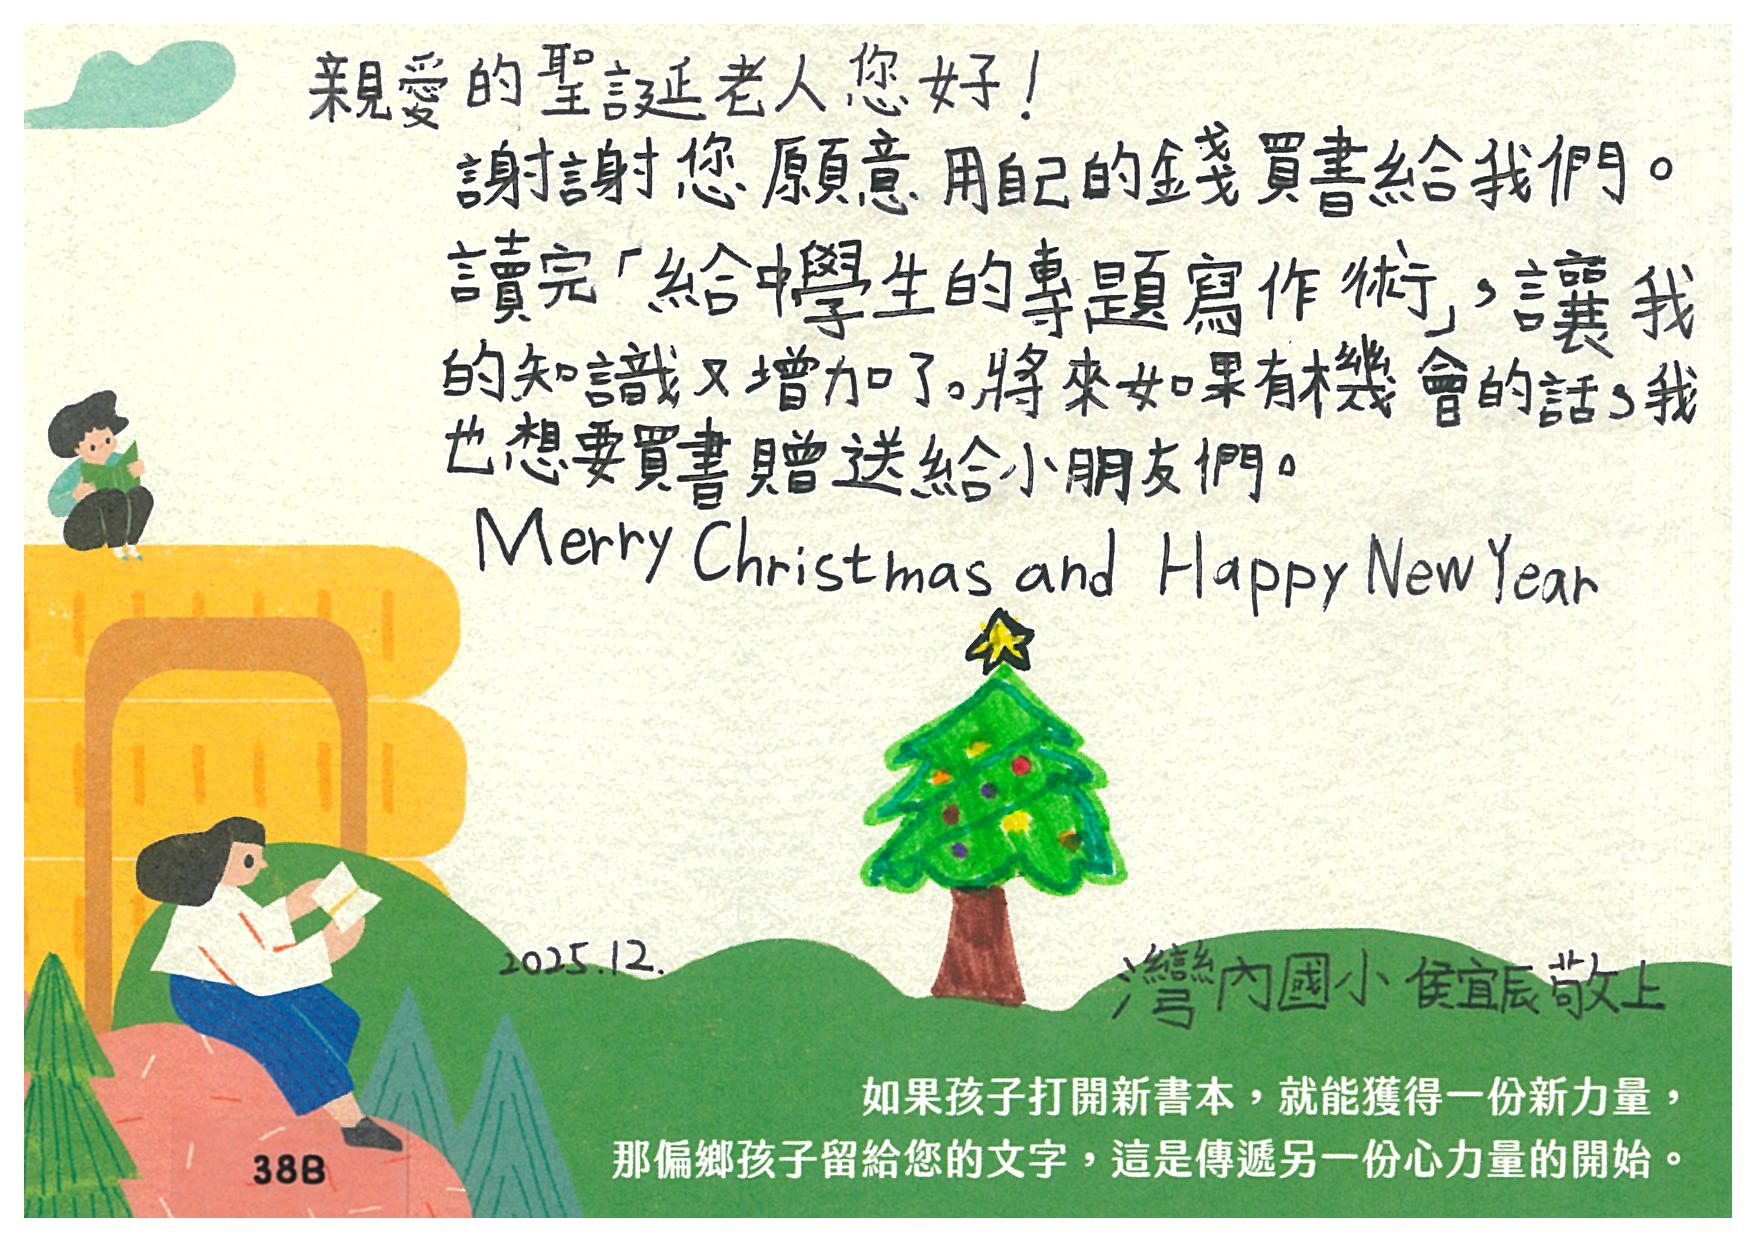 親愛的聖誕老人您好！
謝謝您願意用自己的錢買書給我們。
讀完「給中學生的專題寫作術」，讓我
的知識又增加了。將來如果有機會的話，我
也想要買書贈送給小朋友們。
Merry Christmas and Happy New Year
2025.12.
灣內國小 侯宜辰敬上
如果孩子打開新書本，就能獲得一份新力量，
那偏鄉孩子留給您的文字，這是傳遞另一份心力量的開始。
38B